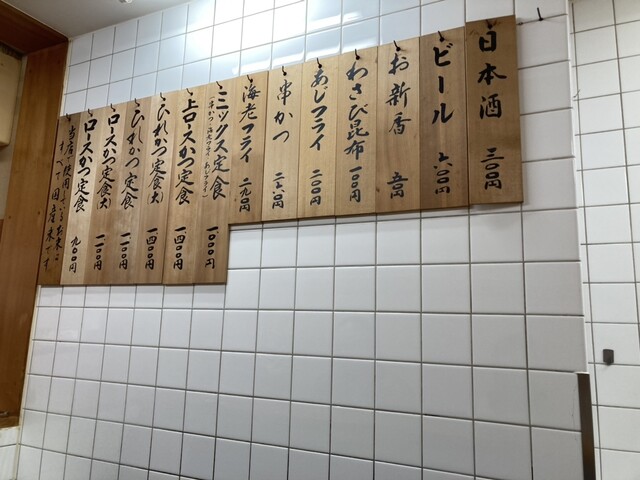 日本酒 三〇〇円
ビール 六〇〇円
お新香 五〇円
わさび昆布 一〇〇円
あじフライ 二〇〇円
串かつ 二六〇円
海老フライ 二九〇円
ミックス定食 一〇〇〇円
(串かつ・海老フライ・あじフライ)
上ロースかつ定食 一四〇〇円
ひれかつ定食(大) 一四〇〇円
ひれかつ定食 一一〇〇円
ロースかつ定食(大) 一一〇〇円
ロースかつ定食 九〇〇円
当店で使用しているお米は
すべて国産米です